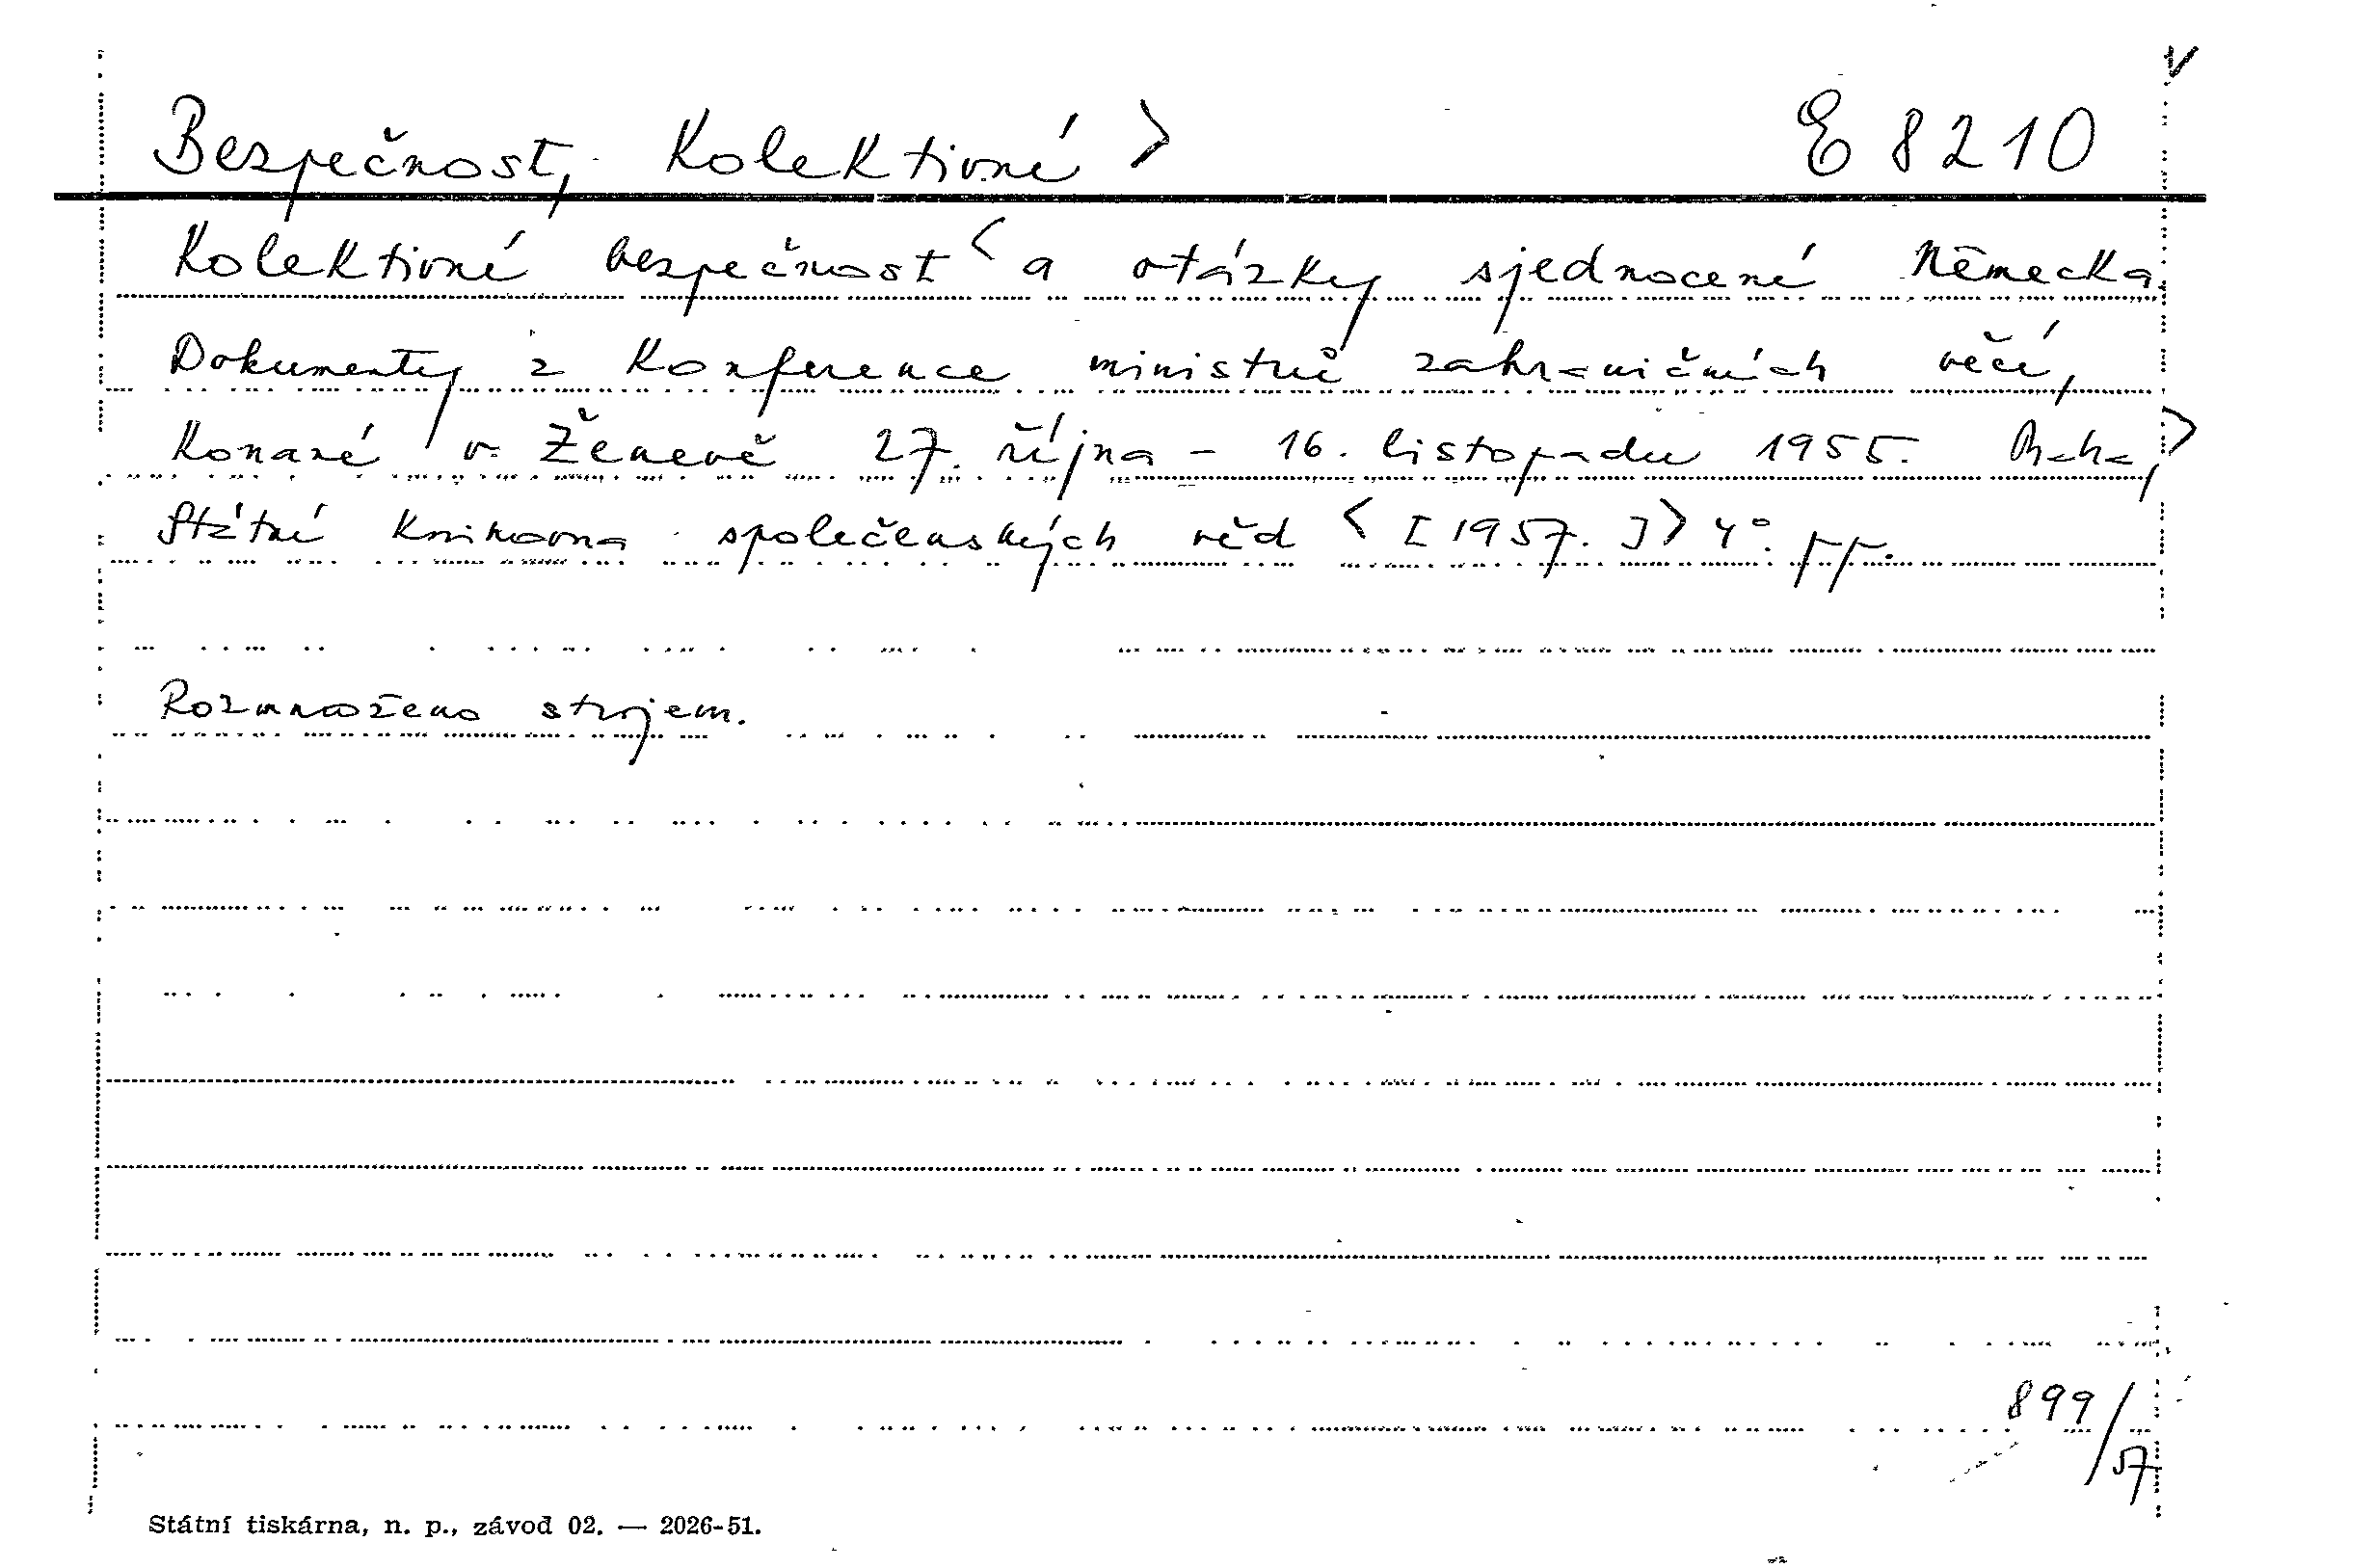 Bezpečnost, Kolektivní > E 8210
Kolektivní bezpečnost < a otázky sjednocení Německa.
Dokumenty z Konference ministrů zahraničních věcí,
Konané v Ženevě 27. října - 16. listopadu 1955. Praha, >
Státní Knihovna společenských věd < [1957.] > 4°. pp.
Rozmnoženo strojem.
899/57
Státní tiskárna, n. p., závod 02. — 2026-51.